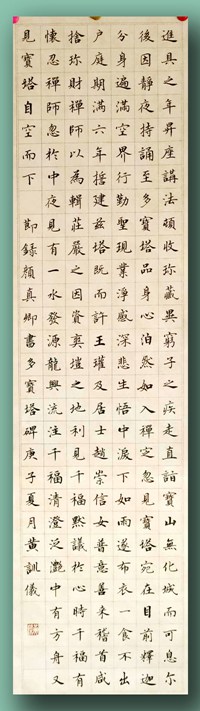 進具之年昇座講法頓收珎藏異窮子之疾走直詣寶山無化城而可息尔
後因靜夜持誦至多寶塔品身心泊然如入禪定忽見寶塔宛在目前釋迦
分身遍滿空界行勤聖現業淨感深悲生悟中淚下如雨遂布衣一食不出
户庭期滿六年誓建兹塔既而許王瓘及居士趙崇信女普意善来稽首咸
捨珎財禪師以為輯莊嚴之因資爽塏之地利見千福默議於心時千福有
懷忍禪師忽於中夜見有一水發源龍興流注千福清澄泛灩中有方舟又
見寶塔自空而下 節錄顏真卿書多寶塔碑庚子夏月黃訓儀